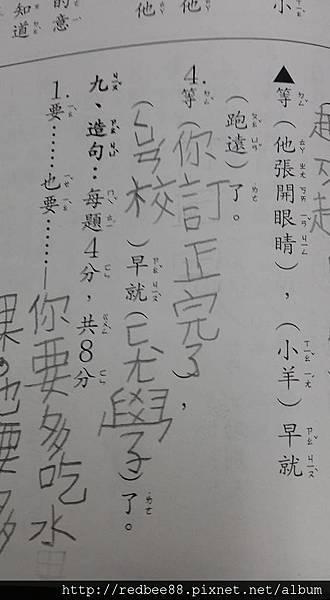 小
他
他
的意
知道
▲等（他張開眼睛），（小羊）早就
（跑遠）了。
4.等（你訂正完了），
（校）早就（ㄈㄤ學了）了。
九、造句：每題4分，共8分
1.要……也要……—你要多吃水
果，也要多
http://redbee88.pixnet.net/album